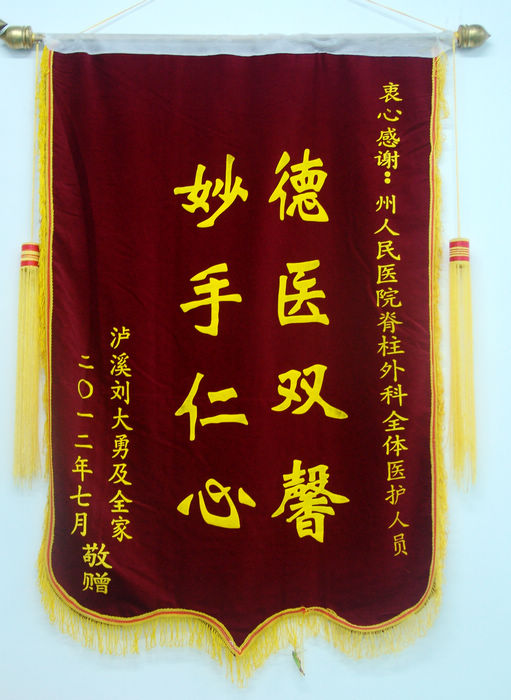 衷心感谢：州人民医院脊柱外科全体医护人员
德医双馨
妙手仁心
泸溪刘大勇及全家
二〇一二年七月
敬赠